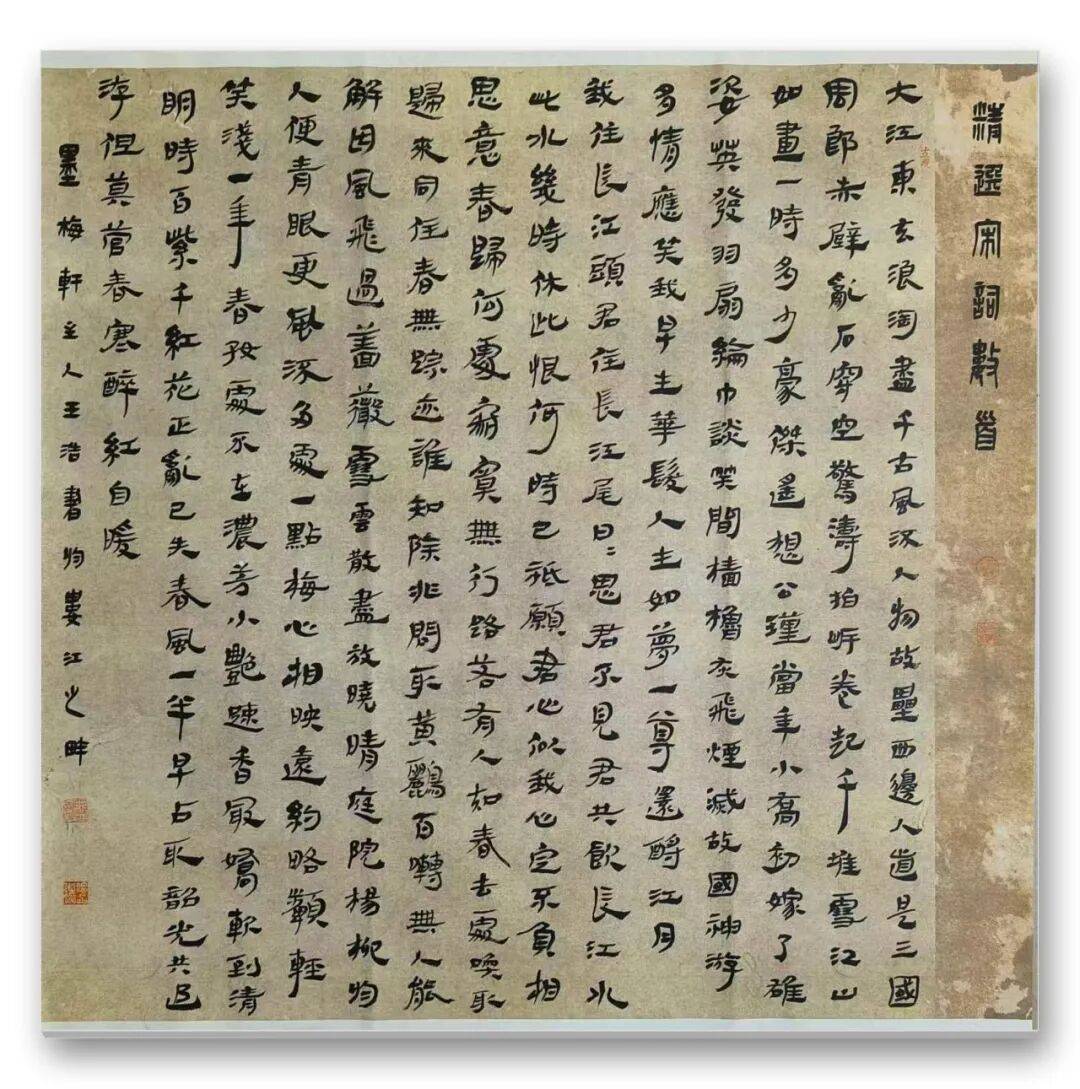 精選宋詞數首
大江東去浪淘盡千古風流人物故壘西邊人道是三國
周郎赤壁亂石穿空驚濤拍岸卷起千堆雪江山
如畫一時多少豪傑遙想公瑾當年小喬初嫁了雄
姿英發羽扇綸巾談笑間檣櫓灰飛煙滅故國神游
多情應笑我早生華髮人生如夢一尊還酹江月
我住長江頭君住長江尾日〻思君不見君共飲長江水
此水幾時休此恨何時已祗願君心似我心定不負相
思意春歸何處寂寞無行路若有人知春去處喚取
歸來同住春無踪迹誰知除非問取黃鸝百囀無人能
解因風飛過薔薇雪雲散盡放曉晴庭院楊柳於
人便青眼更風流多處一點梅心相映遠約略顰輕
笑淺一年春好處不在濃芳小艷疎香最嬌軟到清
明時百紫千紅花正亂已失春風一半早占取韶光共追
游但莫管春寒醉紅自暖
墨梅軒主人王浩書於婁江之畔